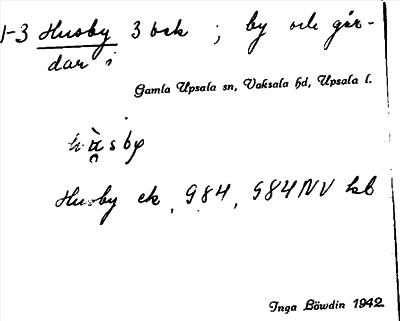 1-3 Husby 3 bsk ; by och går-
dar i
Gamla Upsala sn, Vaksala hd, Upsala l.
Husby ek, 984, 984NV kb
Inga Löwdin 1942.